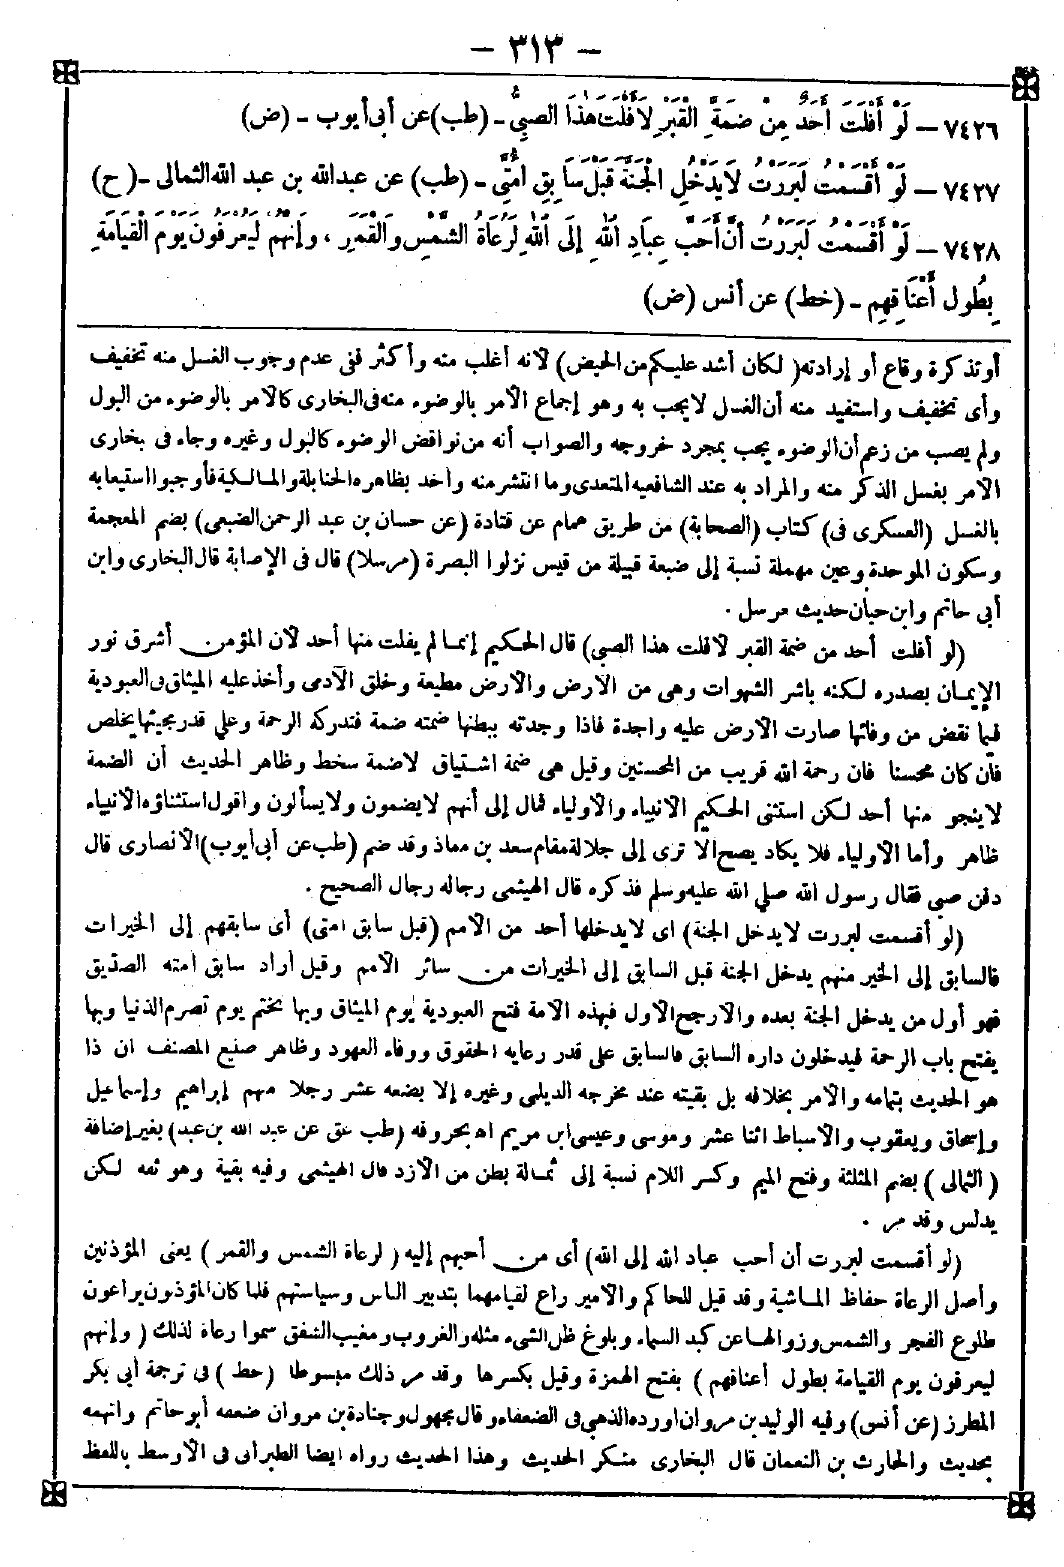 – ٣١٣ –
٧٤٢٦ – لَوْ أَفْلَتَ أَحَدٌ مِنْ ضَمَّةِ الْقَبْرِ لَأَفْلَتَ هٰذَا الصَّبِيُّ – (طب) عن أبى أيوب – (ض)
٧٤٢٧ – لَوْ أَقْسَمْتُ لَبَرَرْتُ لَا يَدْخُلُ الْجَنَّةَ قَبْلَ سَابِقِ أُمَّتِى – (طب) عن عبدالله بن عبد الله الثمالى – (ح)
٧٤٢٨ – لَوْ أَقْسَمْتُ لَبَرَرْتُ أَنَّ أَحَبَّ عِبَادِ اللّٰهِ إِلَى اللّٰهِ لَرُعَاةُ الشَّمْسِ وَالْقَمَرِ ، وَإِنَّهُمْ لَيُعْرَفُونَ يَوْمَ الْقِيَامَةِ
بِطُولِ أَعْنَاقِهِمْ – (خط) عن أنس (ض)
أو تذكرة وقاع أو إرادته (لكان أشد عليكم من الحيض) لأنه أغلب منه وأكثر فى عدم وجوب الغسل منه تخفيف
وأى تخفيف واستفيد منه أن الغسل لا يجب به وهو إجماع الأمر بالوضوء منه فى البخارى كالأمر بالوضوء من البول
ولم يصب من زعم أن الوضوء يجب بمجرد خروجه والصواب أنه من نواقض الوضوء كالبول وغيره وجاء فى بخارى
الأمر بغسل الذكر منه والمراد به عند الشافعيه المتعدى وما انتشر منه وأخد بظاهره الحنابلة والمالكية فأوجبوا استيعابه
بالغسل (العسكرى فى) كتاب (الصحابة) من طريق همام عن قتادة (عن حسان بن عبد الرحمن الضبعى) بضم المعجمة
وسكون الموحدة وعين مهملة نسبة إلى ضبعة قبيلة من قيس نزلوا البصرة (مرسلا) قال فى الإصابة قال البخارى وابن
أبى حاتم وابن حبان حديث مرسل .
(لو أفلت أحد من ضمة القبر لافلت هذا الصبى) قال الحكيم إنما لم يفلت منها أحد لأن المؤمن أشرق نور
الإيمان بصدره لكنه باشر الشهوات وهى من الأرض والأرض مطيعة وخلق الآدمى وأخذ عليه الميثاق فى العبودية
فيما نقض من وفائها صارت الأرض عليه واجدة فاذا وجدته ببطنها ضمته ضمة فتدركه الرحمة وعلى قدر مجيئها يخلص
فان كان محسنا فان رحمة الله قريب من المحسنين وقيل هى ضمة اشتياق لاضمة سخط وظاهر الحديث أن الضمة
لا ينجو منها أحد لكن استثنى الحكيم الأنبياء والأولياء فمال إلى أنهم لا يضمون ولا يسألون وأقول استثناؤه الأنبياء
ظاهر وأما الأولياء فلا يكاد يصح ألا ترى إلى جلالة مقام سعد بن معاذ وقد ضم (طب عن أبى أيوب) الأنصارى قال
دفن صبى فقال رسول الله صلي الله عليه وسلم فذكره قال الهيثمى رجاله رجال الصحيح .
(لو أقسمت لبررت لا يدخل الجنة) اى لا يدخلها أحد من الأمم (قبل سابق امتى) أى سابقهم إلى الخيرات
فالسابق إلى الخير منهم يدخل الجنة قبل السابق إلى الخيرات من سائر الأمم وقيل أراد سابق امته الصديق
فهو أول من يدخل الجنة بعده والأرجح الأول فبهذه الأمة فتح العبودية يوم الميثاق وبها يختم يوم تصرم الدنيا وبها
يفتح باب الرحمة فيدخلون داره السابق فالسابق على قدر رعايه الحقوق ووفاء العهود وظاهر صنيع المصنف ان ذا
هو الحديث بتمامه والأمر بخلافه بل بقيته عند مخرجه الديلمى وغيره إلا بضعه عشر رجلا منهم إبراهيم وإسماعيل
وإسحاق ويعقوب والأسباط اثنا عشر وموسى وعيسى ابن مريم اه بحروفه (طب عق عن عبد الله بن عبد) بغير إضافة
( الثمالى ) بضم المثلثة وفتح الميم وكسر اللام نسبة إلى ثمالة بطن من الأزد قال الهيثمى وفيه بقية وهو ثقه لكن
يدلس وقد مر .
(لو أقسمت لبررت أن أحب عباد الله إلى الله) أى من أحبهم إليه ( لرعاة الشمس والقمر ) يعنى المؤذنين
وأصل الرعاة حفاظ الماشية وقد قيل للحاكم والأمير راع لقيامهما بتدبير الناس وسياستهم فلما كان المؤذنون يراعون
طلوع الفجر والشمس وزوالها عن كبد السماء وبلوغ ظل الشىء مثله والغروب ومغيب الشفق سموا رعاة لذلك ( وإنهم
ليعرفون يوم القيامة بطول أعناقهم ) بفتح الهمزة وقيل بكسرها وقد مر ذلك مبسوطا (خط ) فى ترجمة أبى بكر
المطرز (عن أنس) وفيه الوليد بن مروان اورده الذهبى فى الضعفاء وقال مجهول وجنادة بن مروان ضعفه أبو حاتم واتهمه
بحديث والحارث بن النعمان قال البخارى منكر الحديث وهذا الحديث رواه ايضا الطبرانى فى الأوسط باللفظ